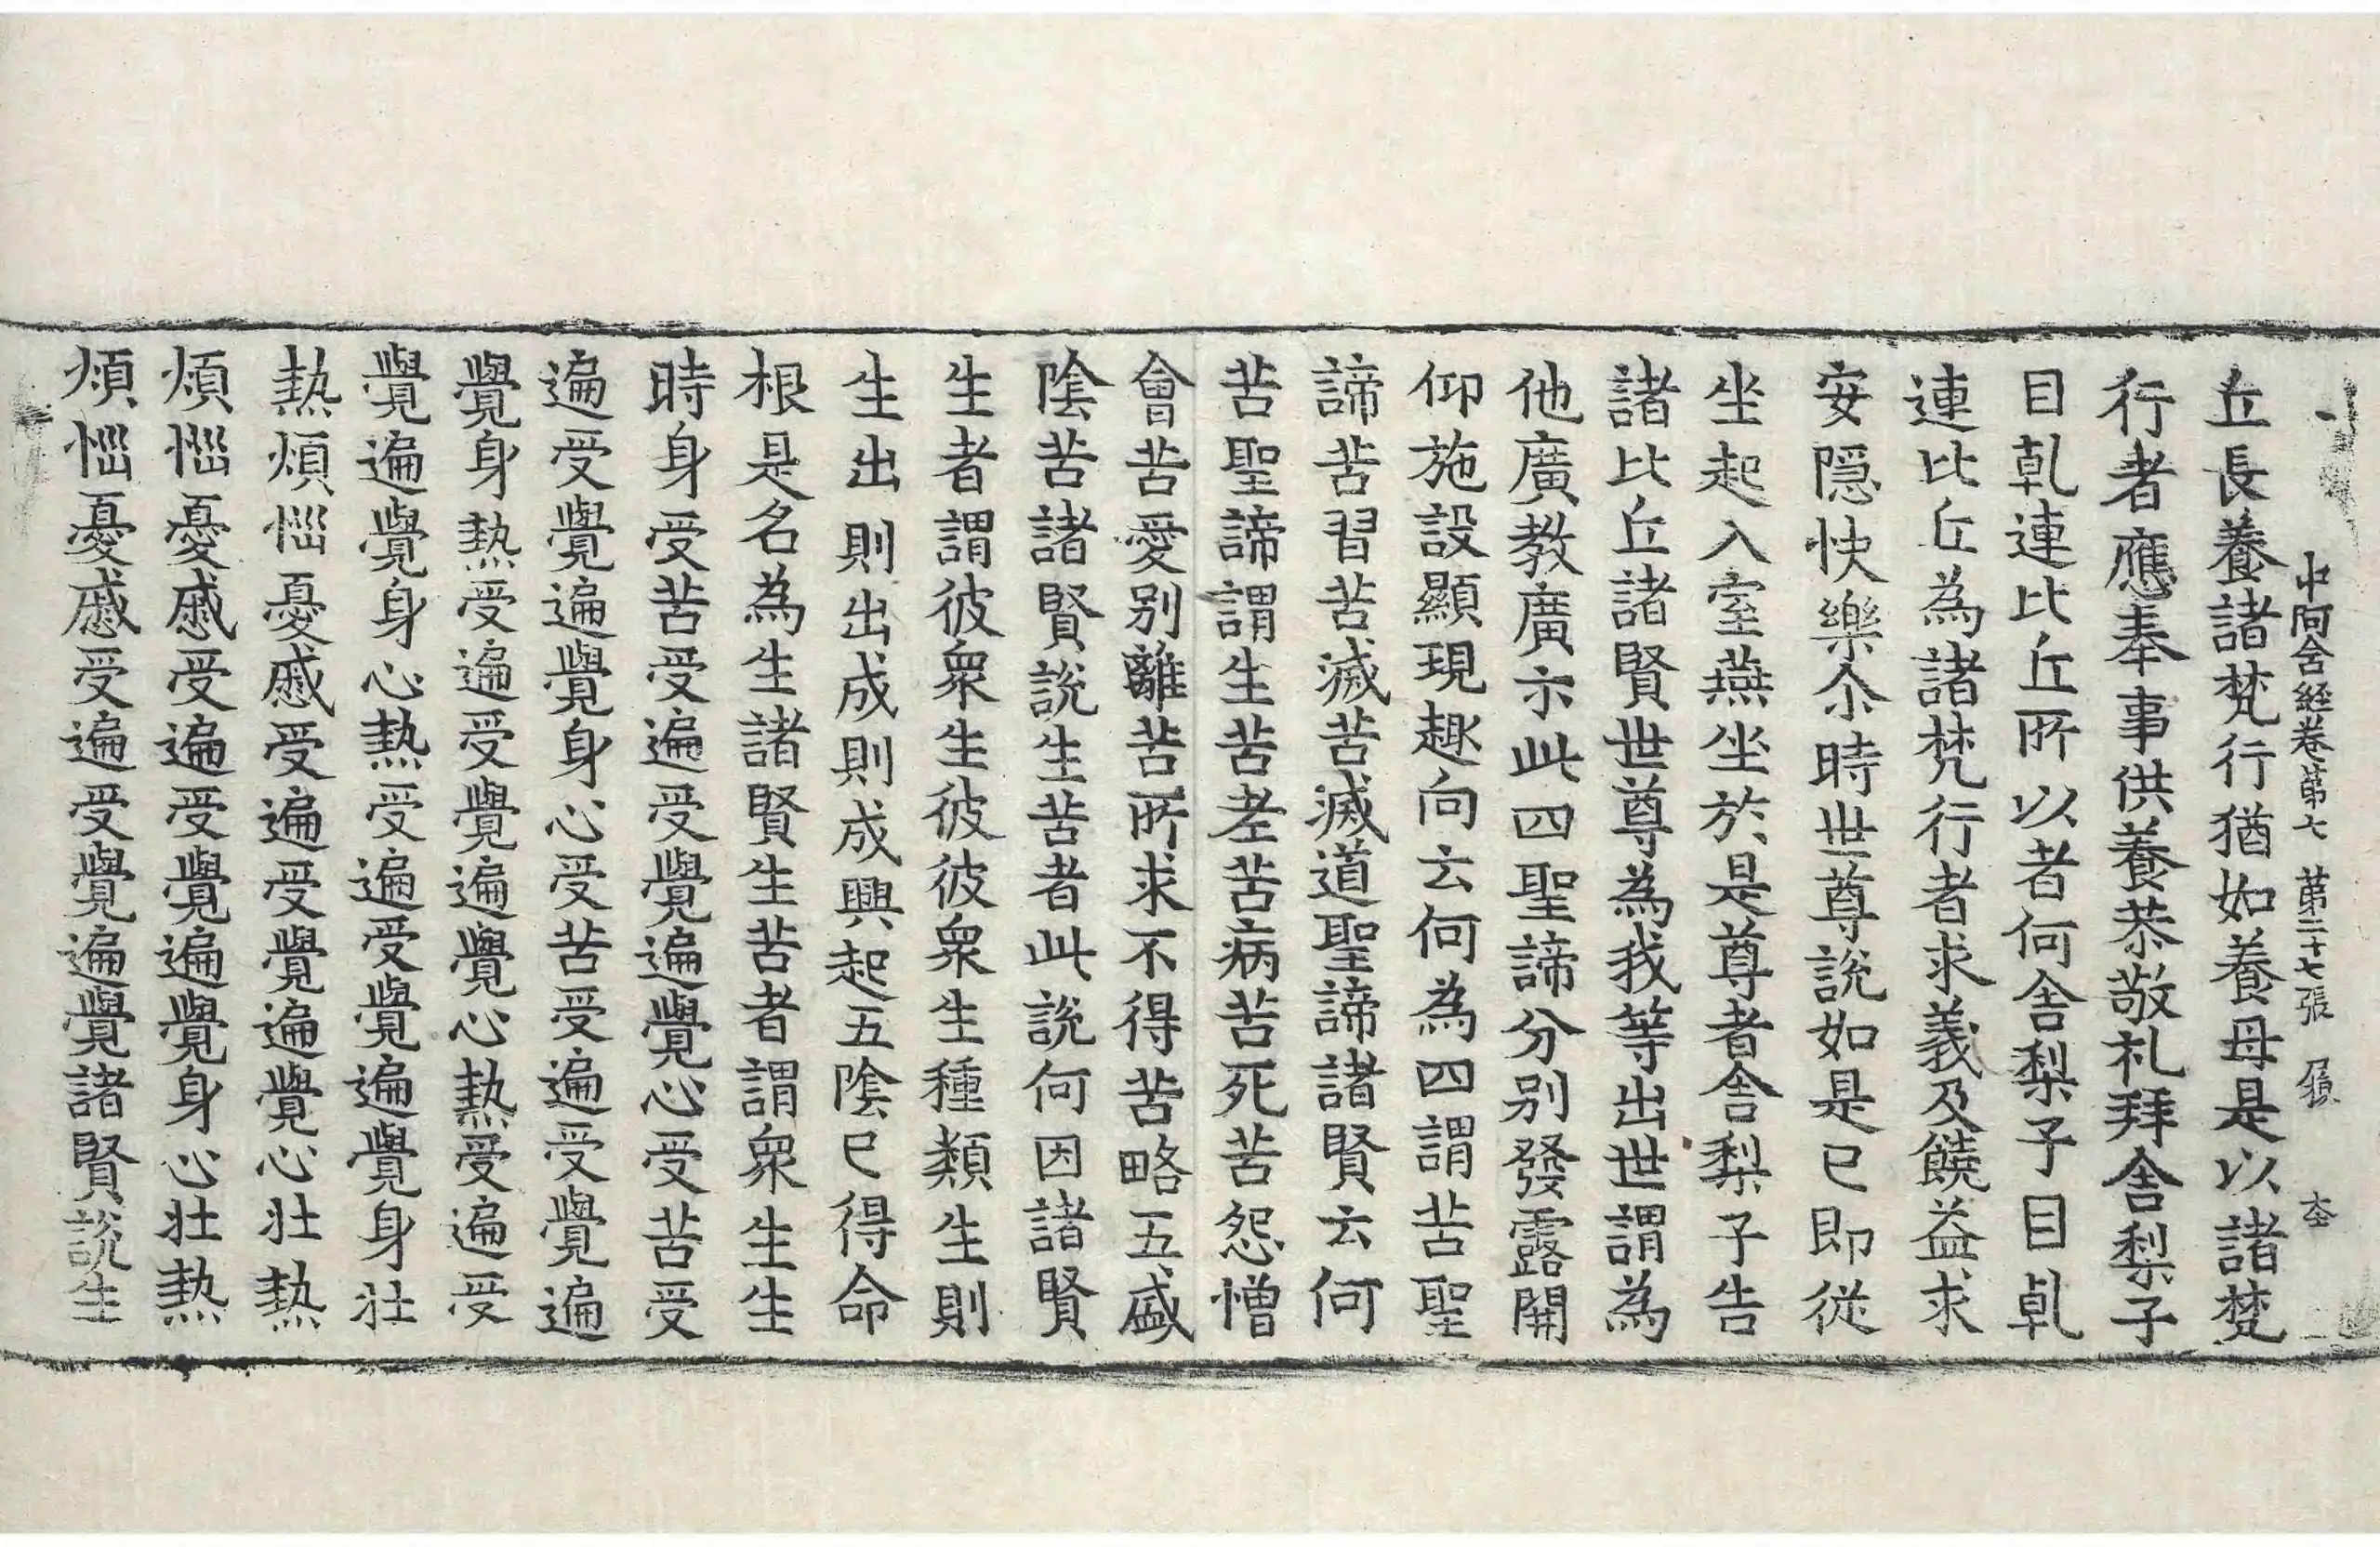 中阿含経卷第七 第二十七張
丘長養諸梵行猶如養母是以諸梵
行者應奉事供養恭敬礼拜舍梨子
目乹連比丘所以者何舍梨子目乹
連比丘為諸梵行者求義及饒益求
安隠快樂尒時世尊說如是已即從
坐起入室燕坐於是尊者舍梨子告
諸比丘諸賢世尊為我等出世謂為
他廣教廣示此四聖諦分別發露開
仰施設顯現趣向云何為四謂苦聖
諦苦習苦滅苦滅道聖諦諸賢云何
苦聖諦謂生苦老苦病苦死苦怨憎
會苦愛別離苦所求不得苦略五盛
陰苦諸賢說生苦者此說何因諸賢
生者謂彼衆生彼彼衆生種類生則
生出則出成則成興起五陰已得命
根是名為生諸賢生苦者謂衆生生
時身受苦受遍受覺遍覺心受苦受
遍受覺遍覺身心受苦受遍受覺遍
覺身熱受遍受覺遍覺心熱受遍受
覺遍覺身心熱受遍受覺遍覺身壯
熱煩惱憂慼受遍受覺遍覺心壯熱
煩惱憂慼受遍受覺遍覺身心壯熱
煩惱憂慼受遍受覺遍覺諸賢說生